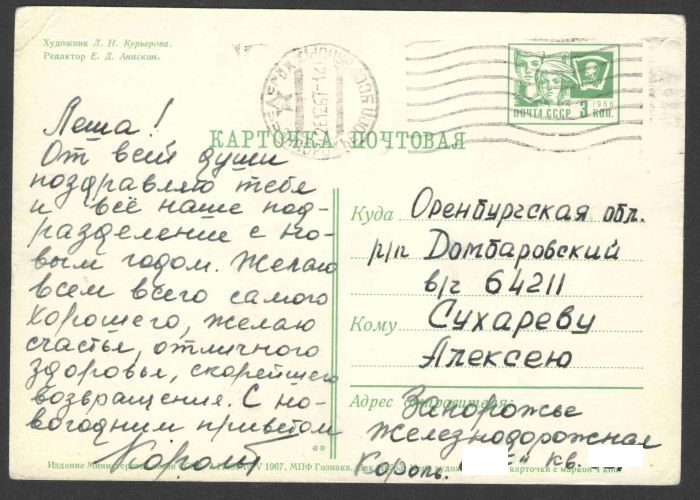 Художник Л. Н. Курьерова.
Редактор Е. Д. Анискин.
ПОЧТА СССР
1966
3 КОП.
КАРТОЧКА ПОЧТОВАЯ
Леша!
От всей души
поздравляю тебя
и всё наше под-
разделение с но-
вым годом. Желаю
всем всего самого
хорошего, желаю
счастья, отличного
здоровья, скорейшего
возвращения. С но-
вогодним приветом
Куда Оренбургская обл.
р/п Домбаровский
в/ч 64211
Кому Сухареву
Алексею
Адрес отправителя:
Запорожье
Железнодорожная
кв.
Король.
Издание Министерства 1967. МПФ Гознака. карточки с маркой 4 коп.